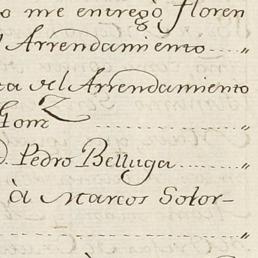 o me entregò Floren
l Arrendamiento ........ „
ta del Arrendamiento
Gomz ........ „
D. Pedro Belluga ........ „
à Marcos Solor-
........ „